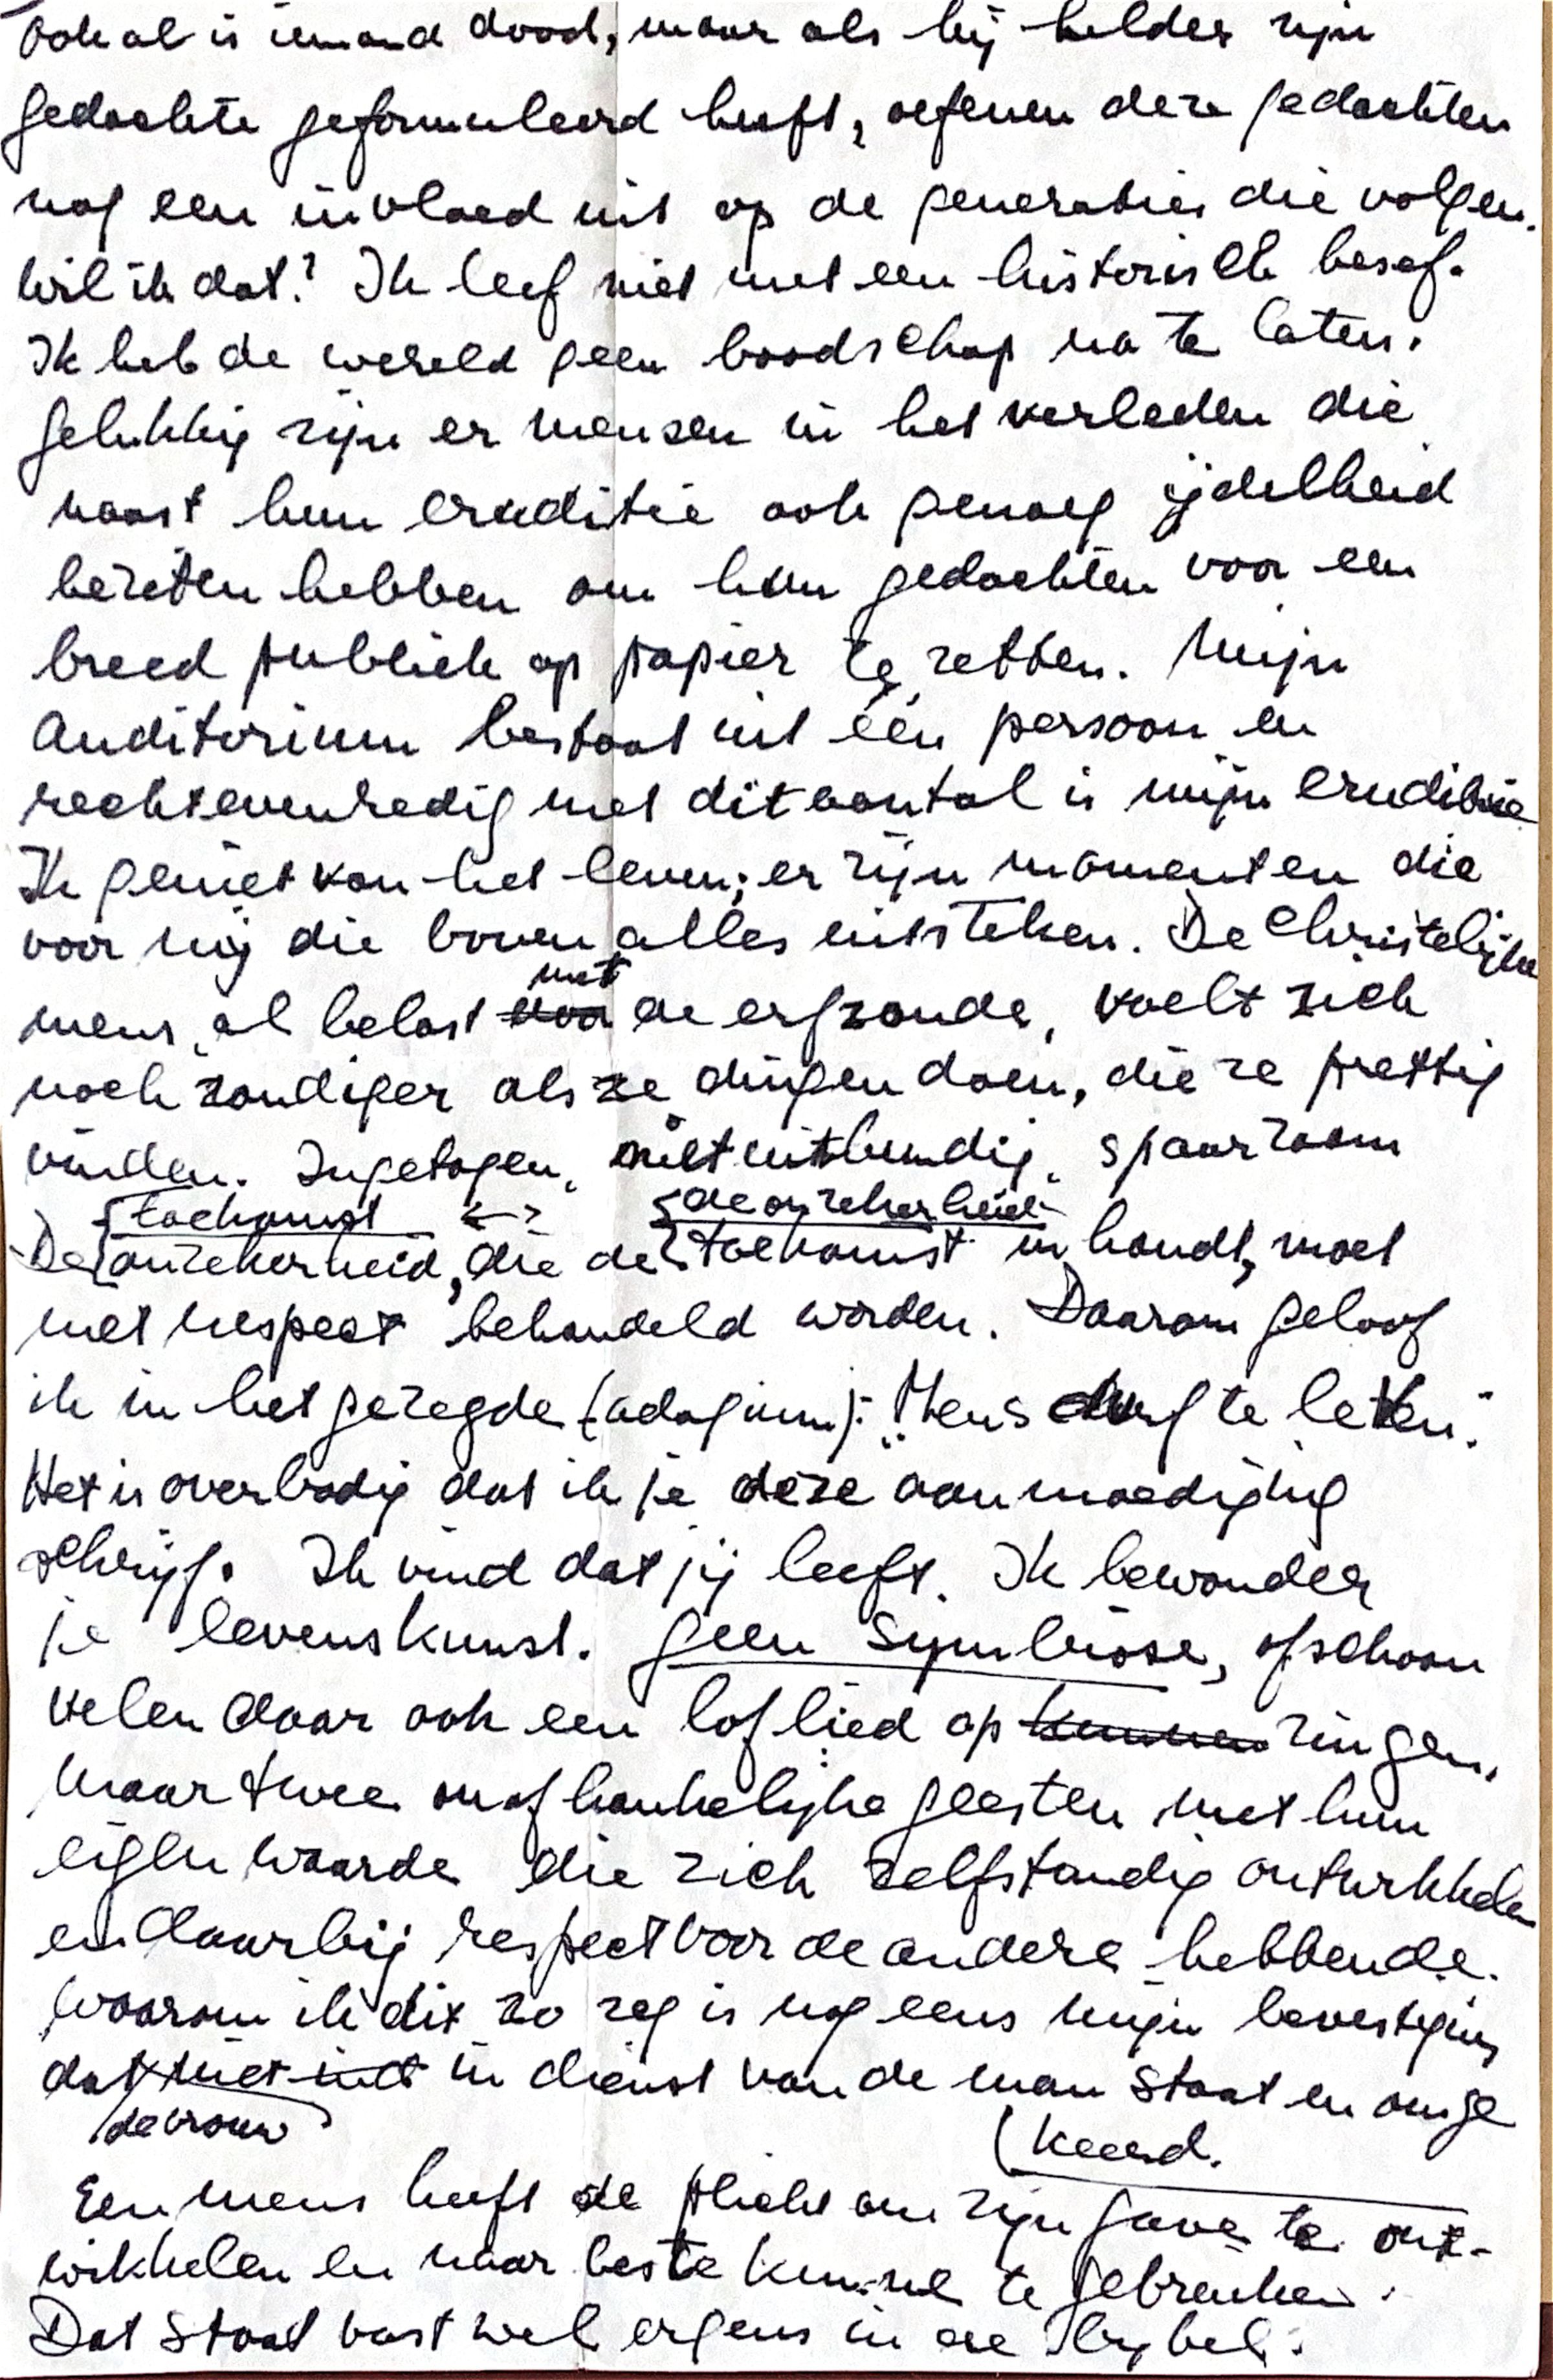 Ook al is iemand dood, maar als hij helder zijn
gedachte geformuleerd heeft, oefenen deze gedachten
nog een invloed uit op de generaties die volgen.
Wil ik dat? Ik leef niet met een historisch besef.
Ik heb de wereld geen boodschap na te laten.
Gelukkig zijn er mensen in het verleden die
naast hun eruditie ook genoeg ijdelheid
bezeten hebben om hun gedachten voor een
breed publiek op papier te zetten. Mijn
Auditorium bestaat uit één persoon en
rechtevenredig met dit aantal is mijn eruditie
Ik geniet van het leven; er zijn momenten die
voor mij die boven alles uitsteken. De Christelijke
met
mens, al belast voor de erfzonde, voelt zich
noch zondiger als ze dingen doen, die ze prettig
vinden. Ingetogen, niet uitbundig, spaarzaam
toekomst <-> de onzekerheid
De onzekerheid, die de toekomst in houdt, moet
met respect behandeld worden. Daarom geloof
ik in het gezegde (adagium): "Mens durf te leven".
Het is overbodig dat ik je deze aanmoediging
schrijf. Ik vind dat jij leeft. Ik bewonder
je levenskunst. Geen Symbiose, ofschoon
velen daar ook een loflied op kunnen zingen,
maar twee onafhankelijke geesten met hun
eigen waarde die zich zelfstandig ontwikkelen
en daarbij respect voor de andere hebbende.
Waarom ik dit zo zeg is nog eens mijn bevestiging
dat niet in dienst van de man staat en omge
de vrouw
keerd.
Een mens heeft de plicht om zijn gave te ont-
wikkelen en naar beste kunne te gebruiken.
Dat staat vast wel ergens in de Bijbel.